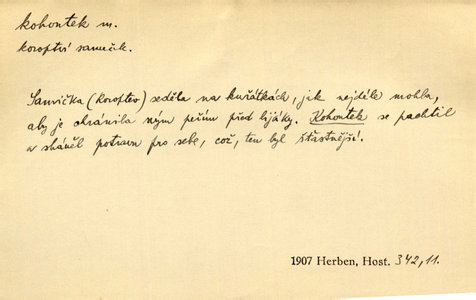 kohoutek m.
koroptví sameček.
Samička (koroptev) seděla na kuřátkách, jak nejdéle mohla,
aby je chránila svým peřím před lijáky. Kohoutek se pachtil
a sháněl potravu pro sebe, což, ten byl šťastnější.
1907 Herben, Host. 342,11.